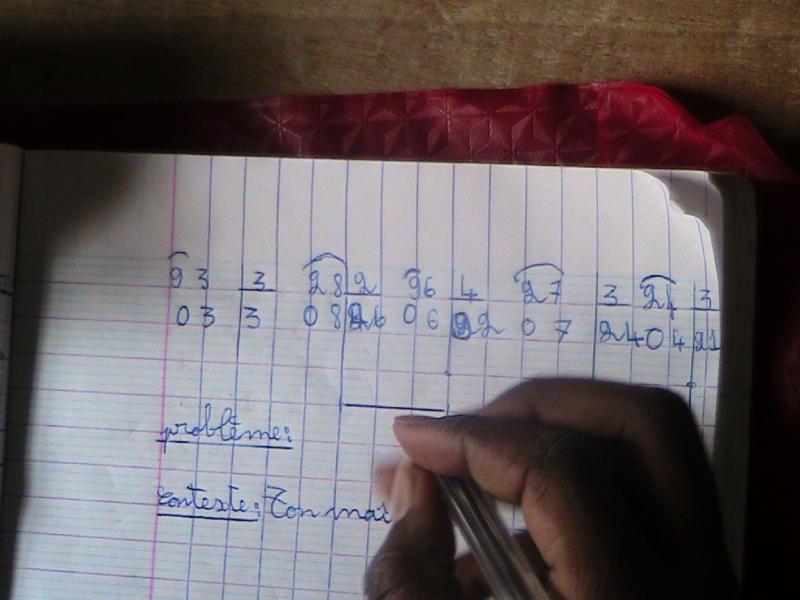 93 3 28 2 96 4 27 3 24 3
03 3 08 26 06 22 07 24 04 21
problème:
contexte: Ton mai